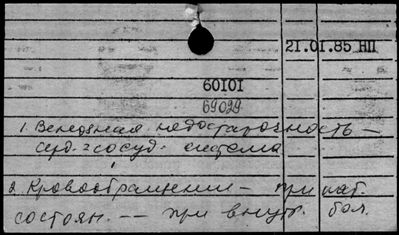 21.01.85 НП
60101
69029
1. Венозная недостаточность –
серд.-сосуд. система
2. Кровообращение – при пат.
состоян. -- при внутр. бол.